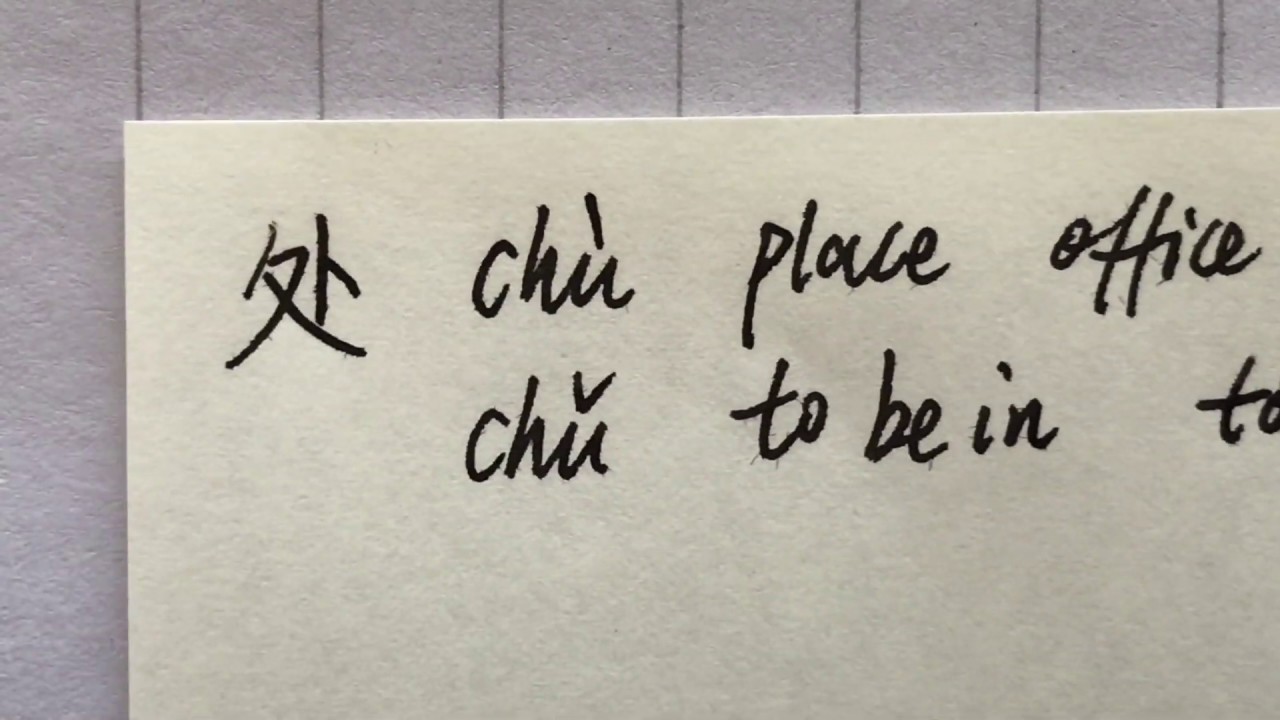 处 chù place office
chǔ to be in to